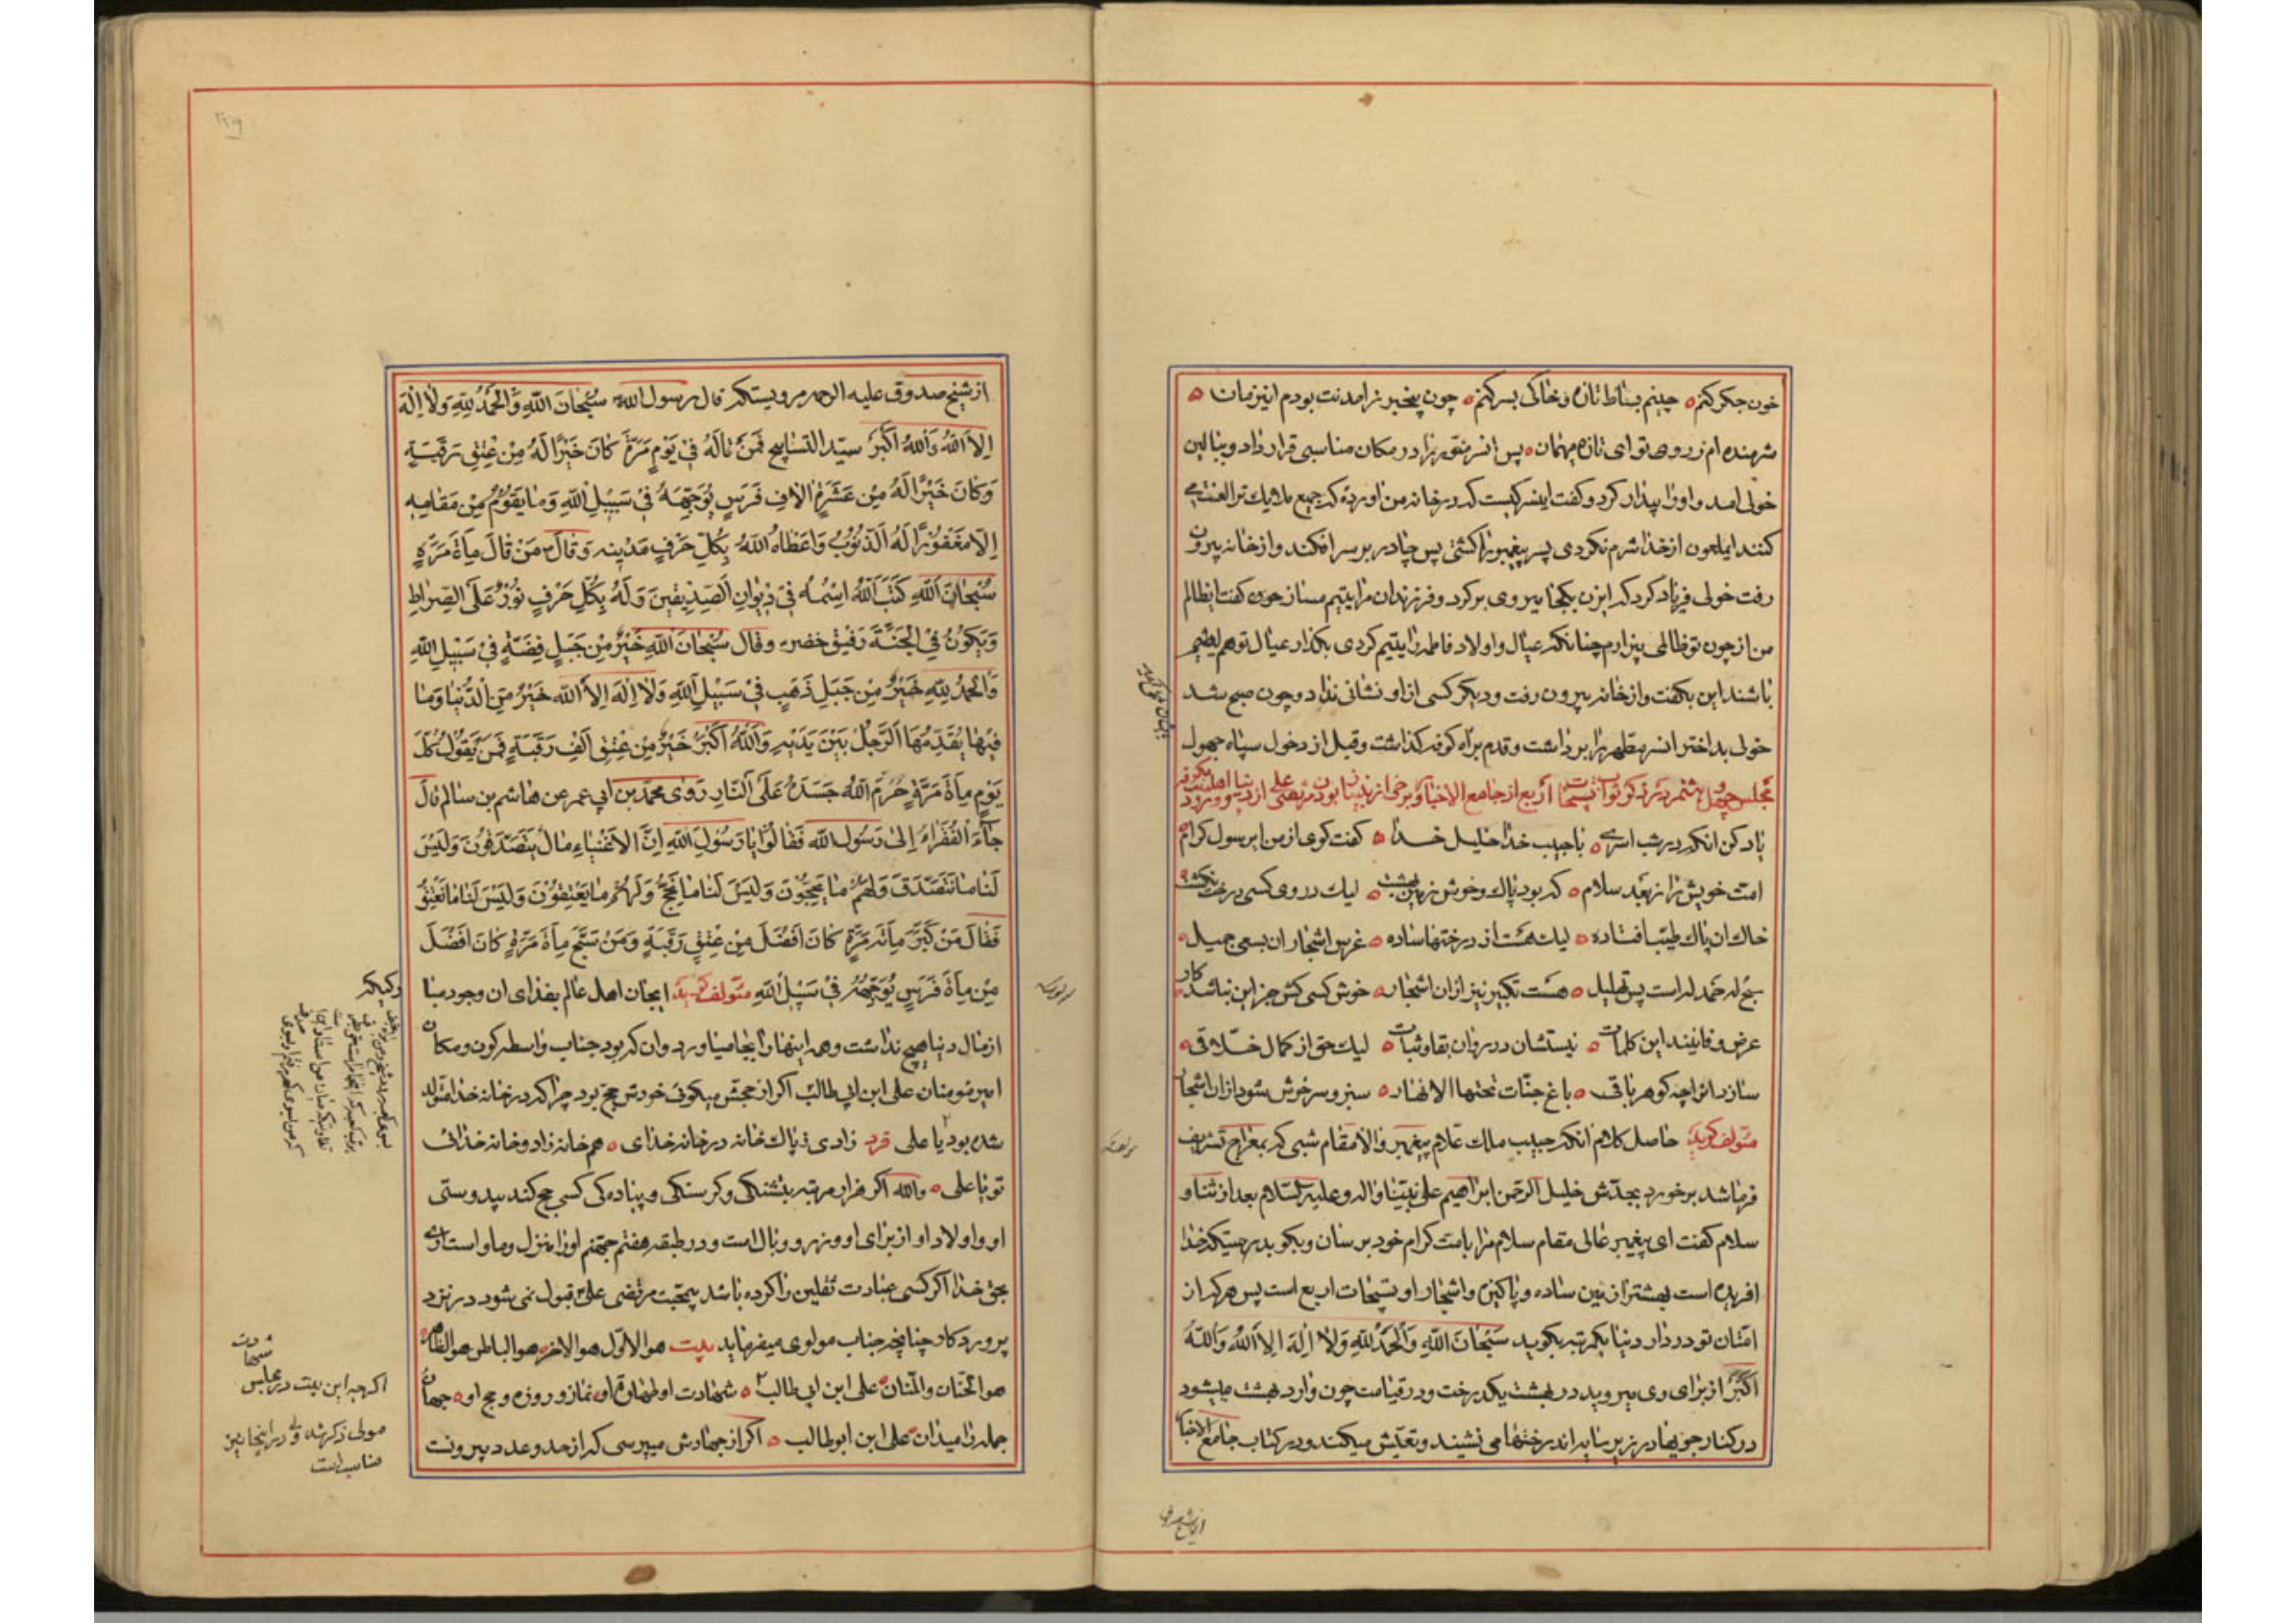 خون جکر کنم ه چینم بساط تازه و خاکی بسر کنم ه چون بیخبر ز امدنت بودم اینزمان ه
شرمنده ام ز روی تو ای تازه میهمان ه پس انسر منوّر را در مکان مناسبی قرار داد و ببالین
خولی امد و او را بیدار کرد و کفت اینسر کیست که در خانه من اورده که جمیع ملایک ترا لعنت می
کنند ایملعون از خدا شرم نکردی پسر پیغمبر را کشتی پس چادر بر سر افکند و از خانه بیرون
رفت خولی فریاد کرد که ایزن بکجا میروی برکرد و فرزندان مرا یتیم مساز حوری کفت ایظالم
من از چون تو ظالمی بیزارم چنانکه عیال و اولاد فاطمه را یتیم کردی بکذار عیال تو هم یتیم
باشند این بکفت و از خانه بیرون رفت و دیکر کسی از او نشانی نداد و چون صبح شد
خولی بد اختر انسر مطهر را برداشت و قدم براه کوفه کذاشت و قبل از دخول سپاه جهول
مجلس چهل و هشتم در ذکر ثواب تسبیحات اربع از جامع الاخبار و برخی از
یاد کن انکه در شب اسری ه با حبیب خدا خلیل خدا ه کفت کوی از من ایرسول کرام ه
امت خویش را ز بعد سلام ه که بود پاک و خوش زمین بهشت ه لیک در وی کسی درخت نکشت ه
خاک ان پاک طیب افتاده ه لیک هست از درختها ساده ه غرس اشجار ان بسعی جمیل ه
سبح له حمد له است پس تهلیل ه هست تکبیر نیز از ان اشجار ه خوش کسی کش جز این نباشد کار
عرض و فانیند این کلمات ه نیستشان در روان بقا و ثبات ه لیک حق از کمال خلاقی ه
سازد انرا چه کوهر باقی ه باغ جنات تحتها الانهار ه سبز و سرخوش شود از ان اشجار
مؤلف کوید حاصل کلام انکه حبیب ملک علام پیغمبر والامقام شبی که بمعراج تشریف
فرما شد برخورد بجدّش خلیل الرحمن ابراهیم علی نبینا و اله و علیه السلام بعد از ثنا و
سلام کفت ای پیغمبر عالی مقام سلام مرا بامت کرام خود برسان و بکو بدرستیکه خدا
افریده است بهشتر از زمین ساده و پاکیزه و اشجار او تسبیحات اربع است پس هرکه از
امتان تو در دار دنیا یکمرتبه بکوید سُبْحَانَ اللّهِ وَالْحَمْدُ لِلّهِ وَلاٰ اِلٰهَ اِلاَّ اللّهُ وَاللّهُ
اَکْبَرُ از برای وی میروید در بهشت یکدرخت و در قیامت چون وارد بهشت میشود
در کنار جویها در زیر سایه اندرختها می نشیند و تعیش میکند و در کتاب جامع الاخبار
از شیخ صدوق
از شیخ صدوق علیه الرحمه مرویستکه قال رسول الله سُبْحَانَ اللّهِ وَالْحَمْدُ لِلّهِ وَلاٰ اِلٰهَ
اِلاَّ اللّهُ وَاللّهُ اَکْبَرُ سیّد التسابیح فَمَنْ قالَهُ فی یَوْمٍ مَرَّةً کٰانَ خَیْرًا لَهُ مِنْ عِتْقِ رَقَبَةٍ
وَکانَ خَیْرًا لَهُ مِنْ عَشَرَةِ اٰلافِ فَرَسٍ یُوَجِّهُهُ فی سَبیلِ اللّهِ وَمٰا یَقُومُ مِنْ مَقامِهِ
اِلاّ مَغْفُورًا لَهُ الذُّنُوبُ وَاَعْطاهُ اللّهُ بِکُلِّ حَرْفٍ مَدینه وَ قالَ مَنْ قالَ مِأَةَ مَرَّةٍ
سُبْحَانَ اللّهِ کَتَبَ اللّهُ اسْمَهُ فی دیوانِ الصِّدّیقینَ وَلَهُ بِکُلِّ حَرْفٍ نُورٌ عَلَی الصِّراطِ
وَیَکُونُ فِی الْجَنَّةِ رَفیقَ خضر و قال سُبْحانَ اللّهِ خَیْرٌ مِنْ جَبَلٍ فِضَّةٍ فی سَبیلِ اللّهِ
وَالْحَمْدُ لِلّهِ خَیْرٌ مِنْ جَبَلٍ ذَهَبٍ فی سَبیلِ اللّهِ وَلاٰ اِلٰهَ اِلاَّ اللّه خَیْرٌ مِنَ الدُّنْیا وَمٰا
فیها یُقَدِّمُهَا الرَّجُلُ بَیْنَ یَدَیْهِ وَاللّهُ اَکْبَرُ خَیْرٌ مِنْ عِتْقِ اَلْفِ رَقَبَةٍ فَمَنْ یَقُولُ کُلَّ
یَوْمٍ مِأَةَ مَرَّةٍ حَرَّمَ اللّهُ جَسَدَهُ عَلَی النّارِ رَوٰی محمد بن ابی عمر عن هاشم بن سالم قالَ
جٰاءَ الْفُقَراءُ اِلیٰ رَسُول اللّه فَقالُوا یا رَسُولَ اللّهِ اِنَّ الاَغْنِیاءِ مالٌ یَتَصَدَّقُونَ وَلَیْسَ
لَنا ما نَتَصَدَّقَ وَلَهُمْ ما یَحِجُّونَ وَلَیْسَ لَنا ما نَحِجُّ وَلَهُمْ ما یَعْتِقُونَ وَلَیْسَ لَنا ما نَعْتِقُ
فَقالَ مَنْ کَبَّرَ مِأَتَه مَرَّةٍ کانَ اَفْضَلَ مِنْ عِتْقِ رَقَبَةٍ وَمَنْ سَبَّحَ مِأَةَ مَرَّةٍ کانَ اَفْضَلَ
مِنْ مِأَةَ فَرَسٍ یُوَجِّهُهُ فی سَبیلِ اللّهِ مؤلف کوید ایجان اهل عالم بفدای ان وجود مبا
از مال دنیا هیچ نداشت و همه اینها را بجا میاورد و ان که بود جناب واسطه کون و مکان
امیر مؤمنان علی ابن ابی طالب اکر از حجش میکوئی خودش حج بود چرا که در خانه خدا متولد
شده بود یا علی فرد زادی ز پاک خانه در خانه خدای ه هم خانه زاد و خانه خدائی
تو یا علی ه والله اکر هزار مرتبه بتشنکی و کرسنکی و پیاده کی کسی حج کند بیدوستی
او و اولاد او از برای او وزر و وبال است و در طبقه هفتم جهنم او را منزل و ماوا است
بحق خدا اکر کسی عبادت ثقلین را کرده باشد بیمحبت مرتضی علی قبول نمی شود در نزد
پروردکار چنانچه جناب مولوی میفرماید بیت هو الاوّل هو الاخر هو الباطن هو الظاهر
هو الحنّان و المنّان علی ابن ابی طالب ه شهادت او طهارة او نماز و روزه و حج او ه جهان
جمله را میدان علی ابن ابوطالب ه اکر از جهادش میپرسی که از حد و عدد بیرونست
اکرچه این بیت در مجلس
مولی ذکر شد ولی در اینجا نیز
مناسب است